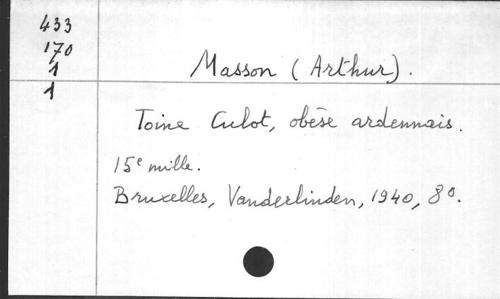 433
170
1
1
Masson (Arthur).
Toine Culot, obèse ardennais.
15e mille.
Bruxelles, Vanderlinden, 1940, 8o.